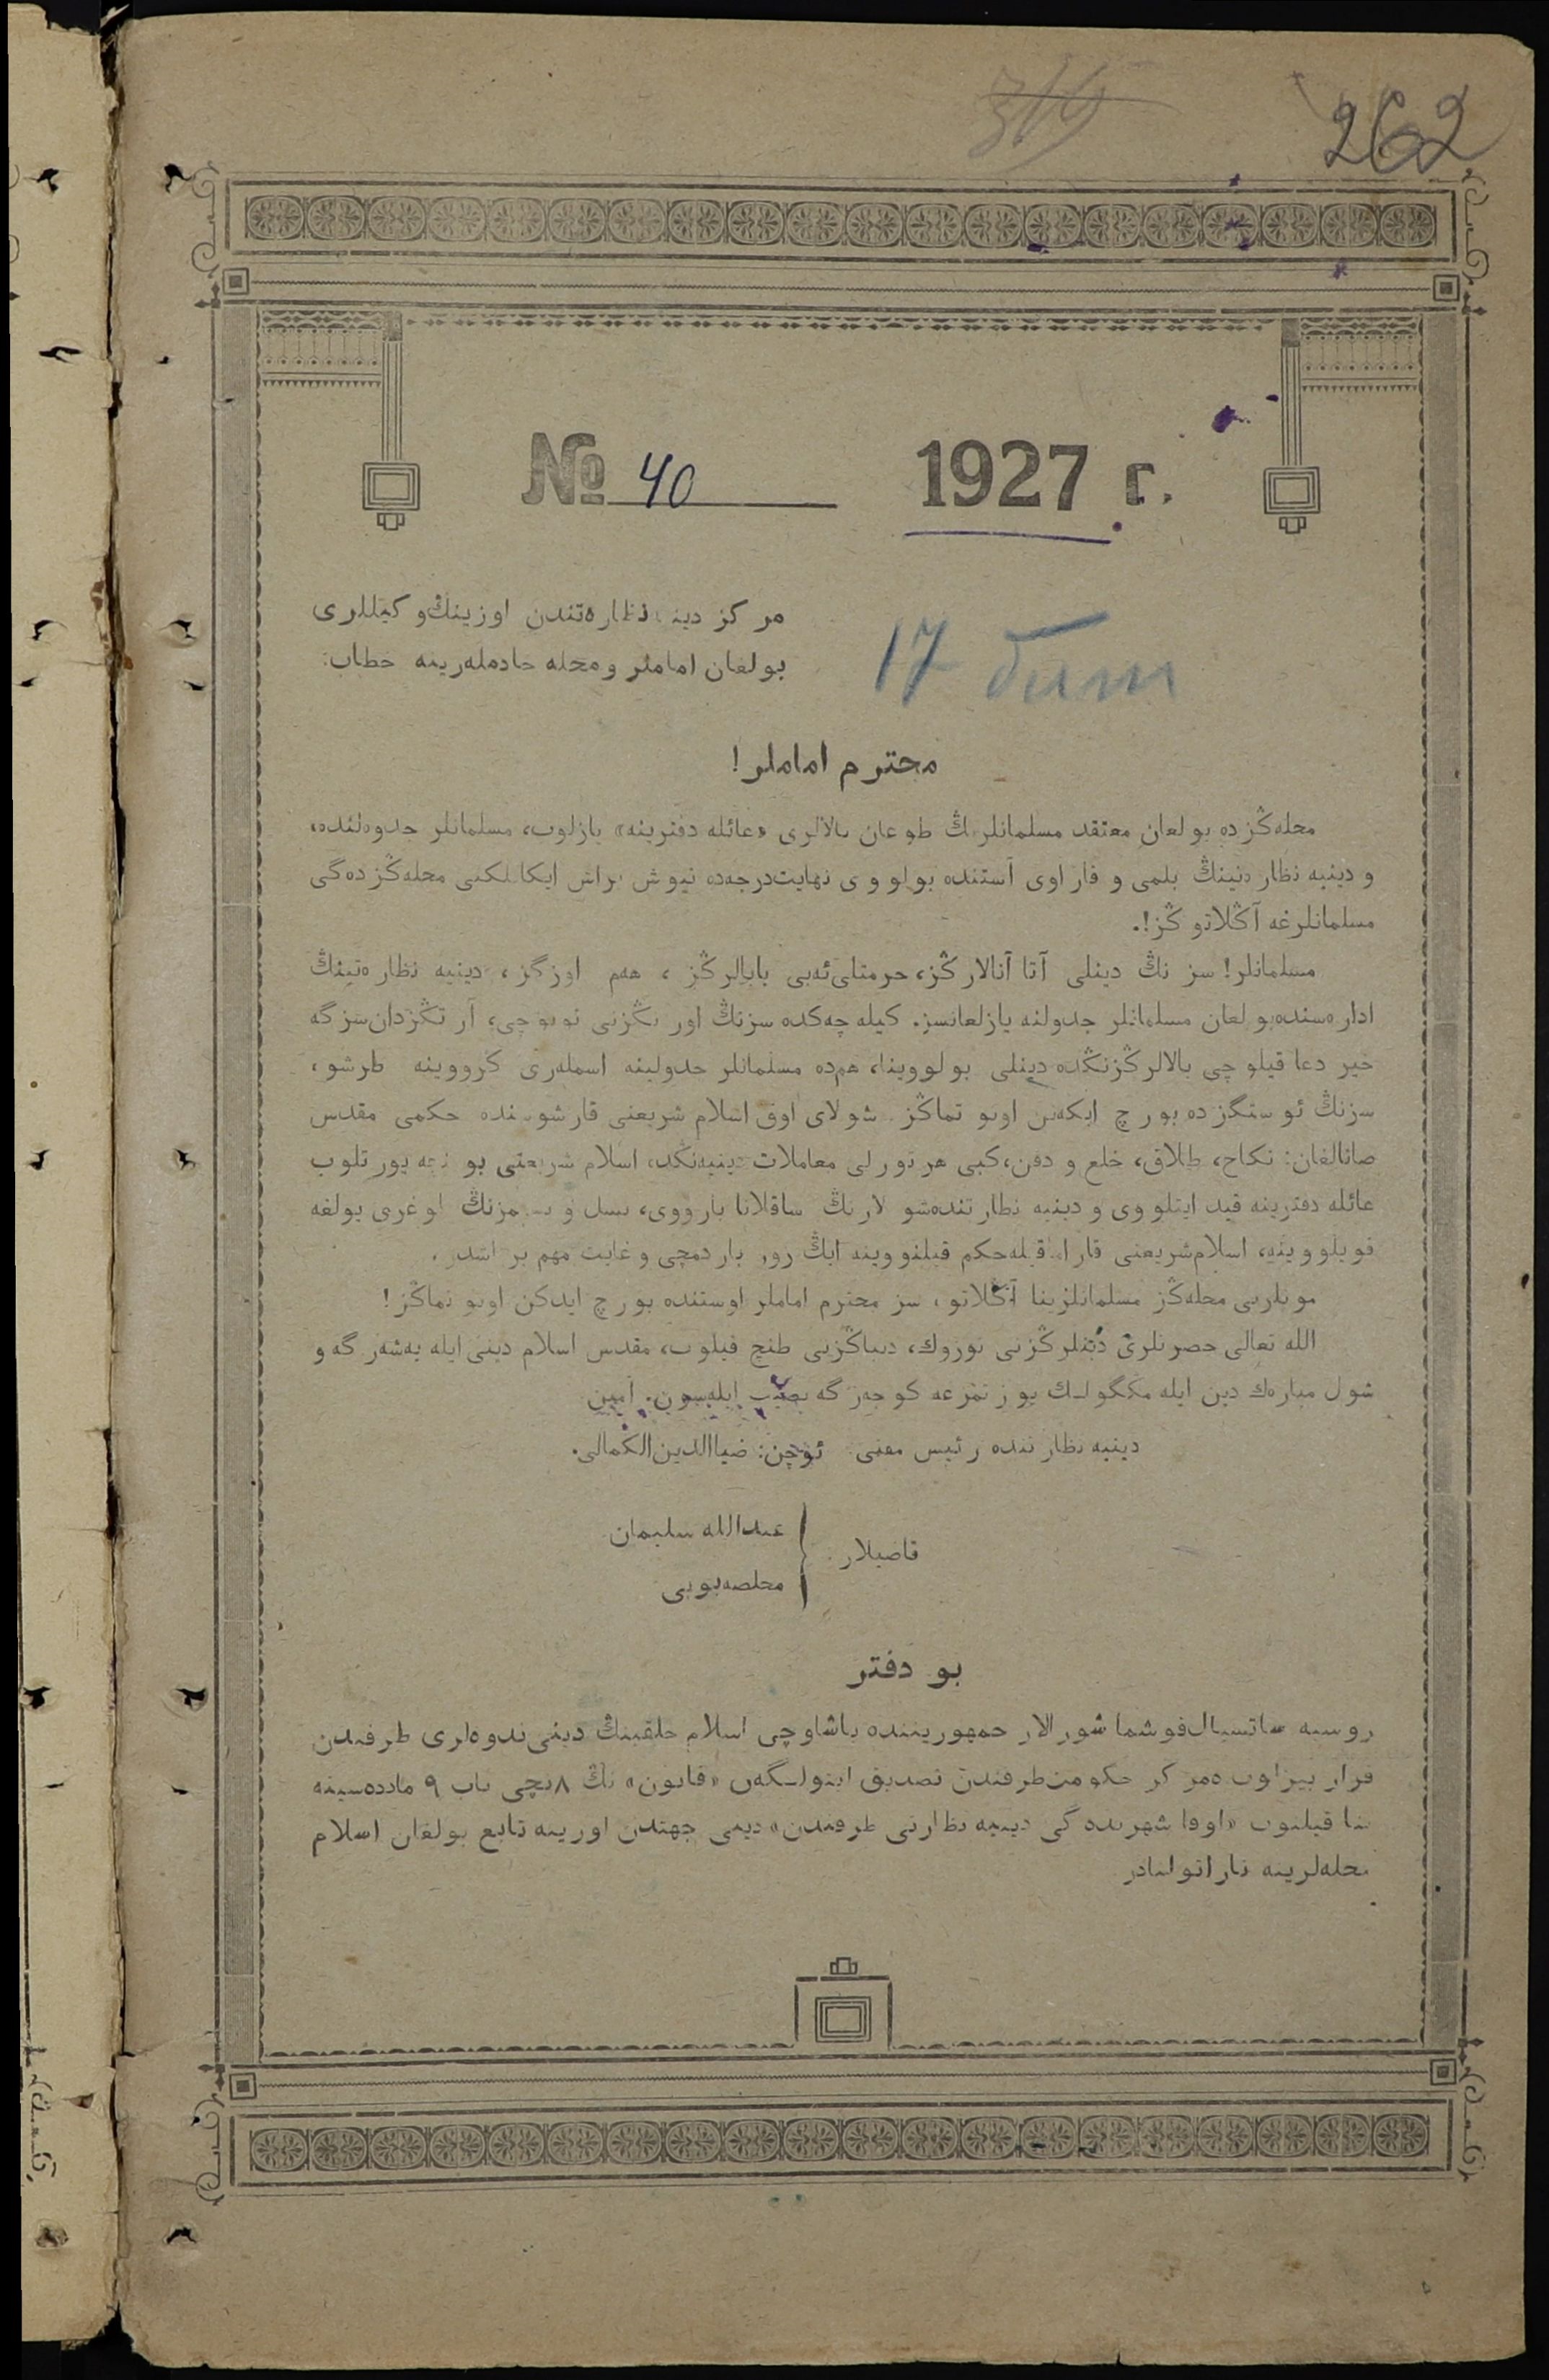 262
№ 40 1927 г.
مركز دينيه نظارەتندن اوزينڭ وكيللرى
بولغان اماملر و محله خادملەرينە خطاب:
17 бит
محترم اماملر!
محلەڭزدە بولغان معتقد مسلمانلرنڭ طوغان بالالرى «عائله دفترينه» يازلوب، مسلمانلر جدولندە،
و دينيه نظارەتينڭ بلمى و قاراوى آستندە بولووى نهايت درجەدە تيوش براش ايكانلكنى محلەڭزدەگى
مسلمانلرغه آڭلاتوڭز!.
مسلمانلر! سزنڭ دينلى آتا آنالارڭز، حرمتلى ئەبى بابالرڭز، هەم اوزگز، دينيه نظارەتينڭ
ادارەسندە بولغان مسلمانلر جدولنه يازلغانسز. كيلەچەكدە سزنڭ اورنڭزنى توتوچى، آرتڭزدان سزگە
خير دعا قيلوچى بالالرڭزنڭدە دينلى بولووينا، هم دە مسلمانلر جدولينه اسملەرى كرووينه طرشو،
سزنڭ ئوستگزدە بورچ ايكەنن اونوتماڭز. شولاى اوق اسلام شريعتى قارشوسندە حكمى مقدس
صانالغان: نكاح، طلاق، خلع و دفن، كبى هر تورلى معاملات دينيەنڭدە، اسلام شريعتى بوينچه يورتلوب
عائله دفترينه قيد ايتلووى و دينيه نظارتندە شولارنڭ ساقلانا بارووى، نسل و نسبمزنڭ طوغرى يولغه
قويلووينه، اسلام شريعتى قارامقله حكم قيلنووينه ايڭ زور ياردمچى و غايت مهم بر اشدر.
مونلرنى محلەڭز مسلمانلرينا آڭلاتو، سز محترم اماملر اوستندە بورچ ايدكن اونوتماڭز!
الله تعالى حضرتلرى دينلرڭزنى توزوك، دنياڭزنى طنچ قيلوب، مقدس اسلام دينى ايله يەشەرگە و
شول مبارەك دين ايله مڭگولك يورتمزغه كوچەرگە نصيب ايلەسون. آمين.
دينيه نظارتندە رئيس مفتى ئوچن: ضياالدين الكمالى.
قاضيلار: عبدالله سليمان
مخلصه بوبى
بو دفتر
روسيه ساتسيال قوشما شورالار جمهوريتندە ياشاوچى اسلام خلقينڭ دينى ندوەلرى طرفندن
قرار بيرلوب مركز حكومت طرفندن تصديق ايتولگەن «قانون» نڭ ٨نچى باب ٩ ماددەسينه
بنا قيلنوب «اوفا شهرندەگى دينيه نظارتى طرفندن» دينى جهتدن اورينه تابع بولغان اسلام
محلەلرينه تاراتولنادر